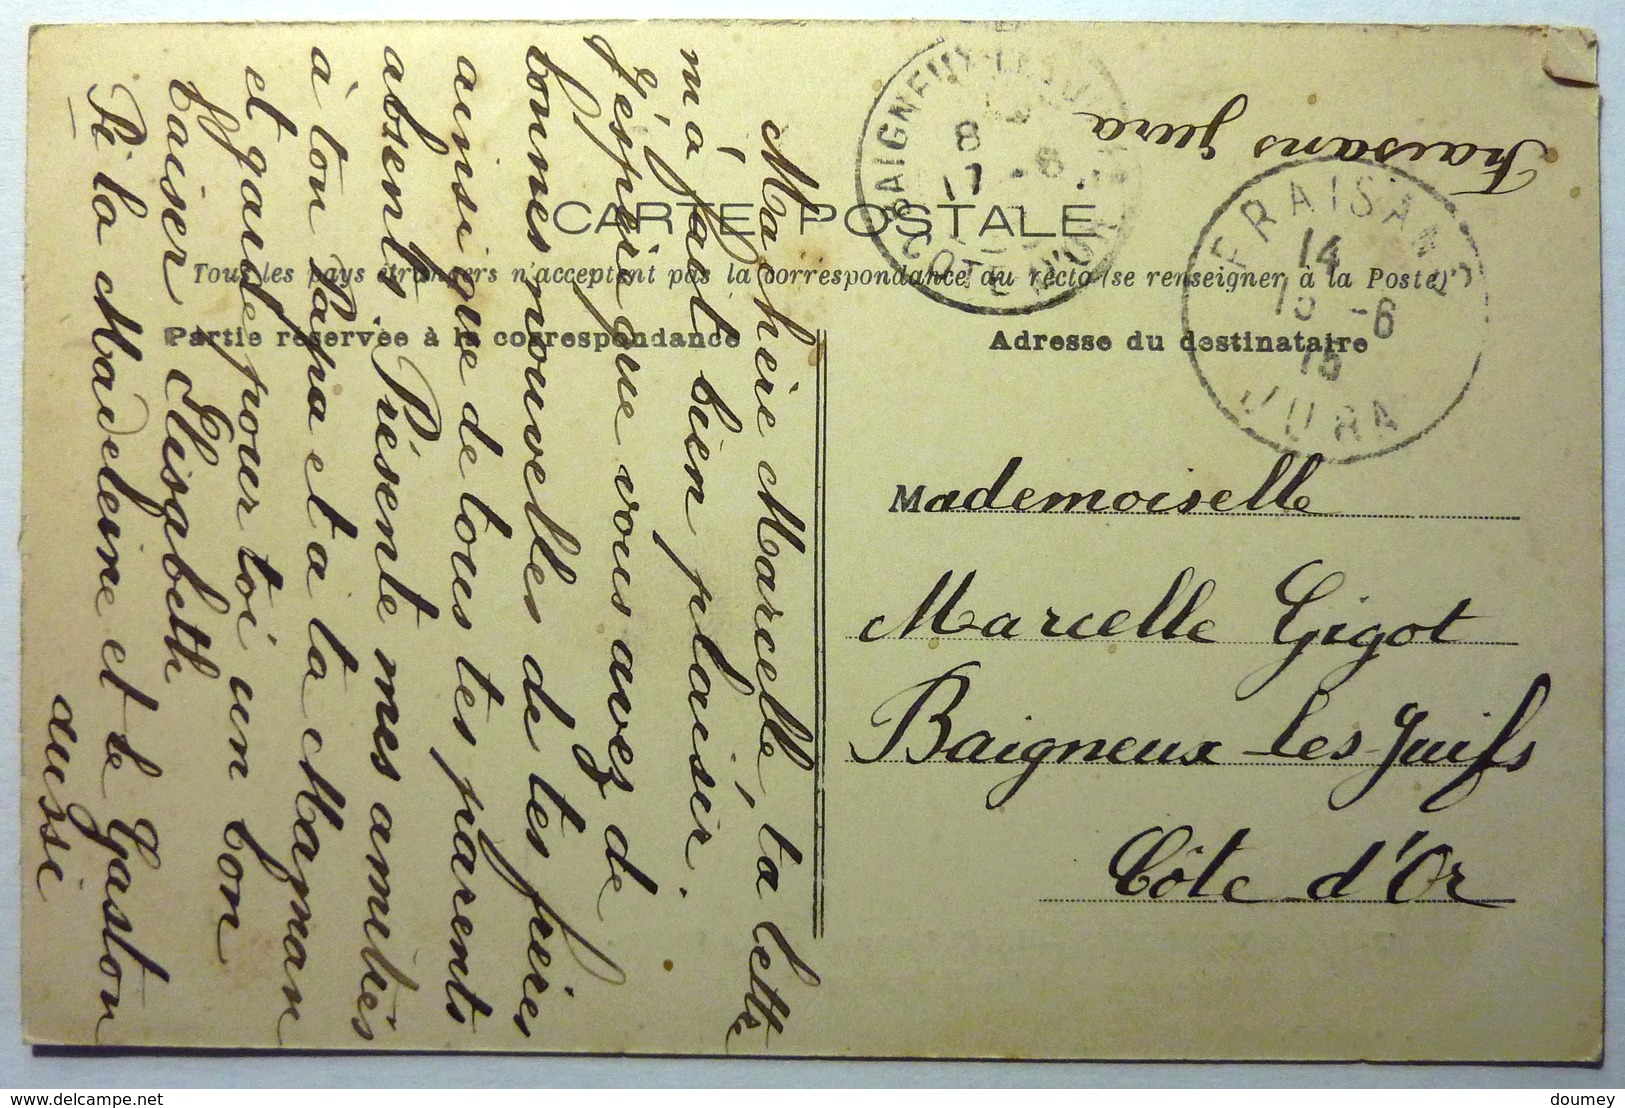 Fraisans Jura
BAIGNEUX-LES-JUIFS
8
17 -6
CÔTE D'OR
FRAISANS
14
15 -6
15
JURA
CARTE POSTALE
Tous les pays étrangers n'acceptent pas la correspondance au recto (se renseigner à la Poste)
Partie réservée à la correspondance
Adresse du destinataire
Mademoiselle
Marcelle Gigot
Baigneux les Juifs
Côte d'Or
Ma hère Marcelle, ta lettre
m'a fait bien plaisir.
J'éspère que vous avez de
bonnes nouvelles de tes frères
ainsi que de tous tes parents
absents. Présente mes amitiés
à ton Papa et a ta Magnan
et garde pour toi un bon
baiser Elisabeth
Pi la Madeleine et le Gaston
aussi
doumey
www.delcampe.net